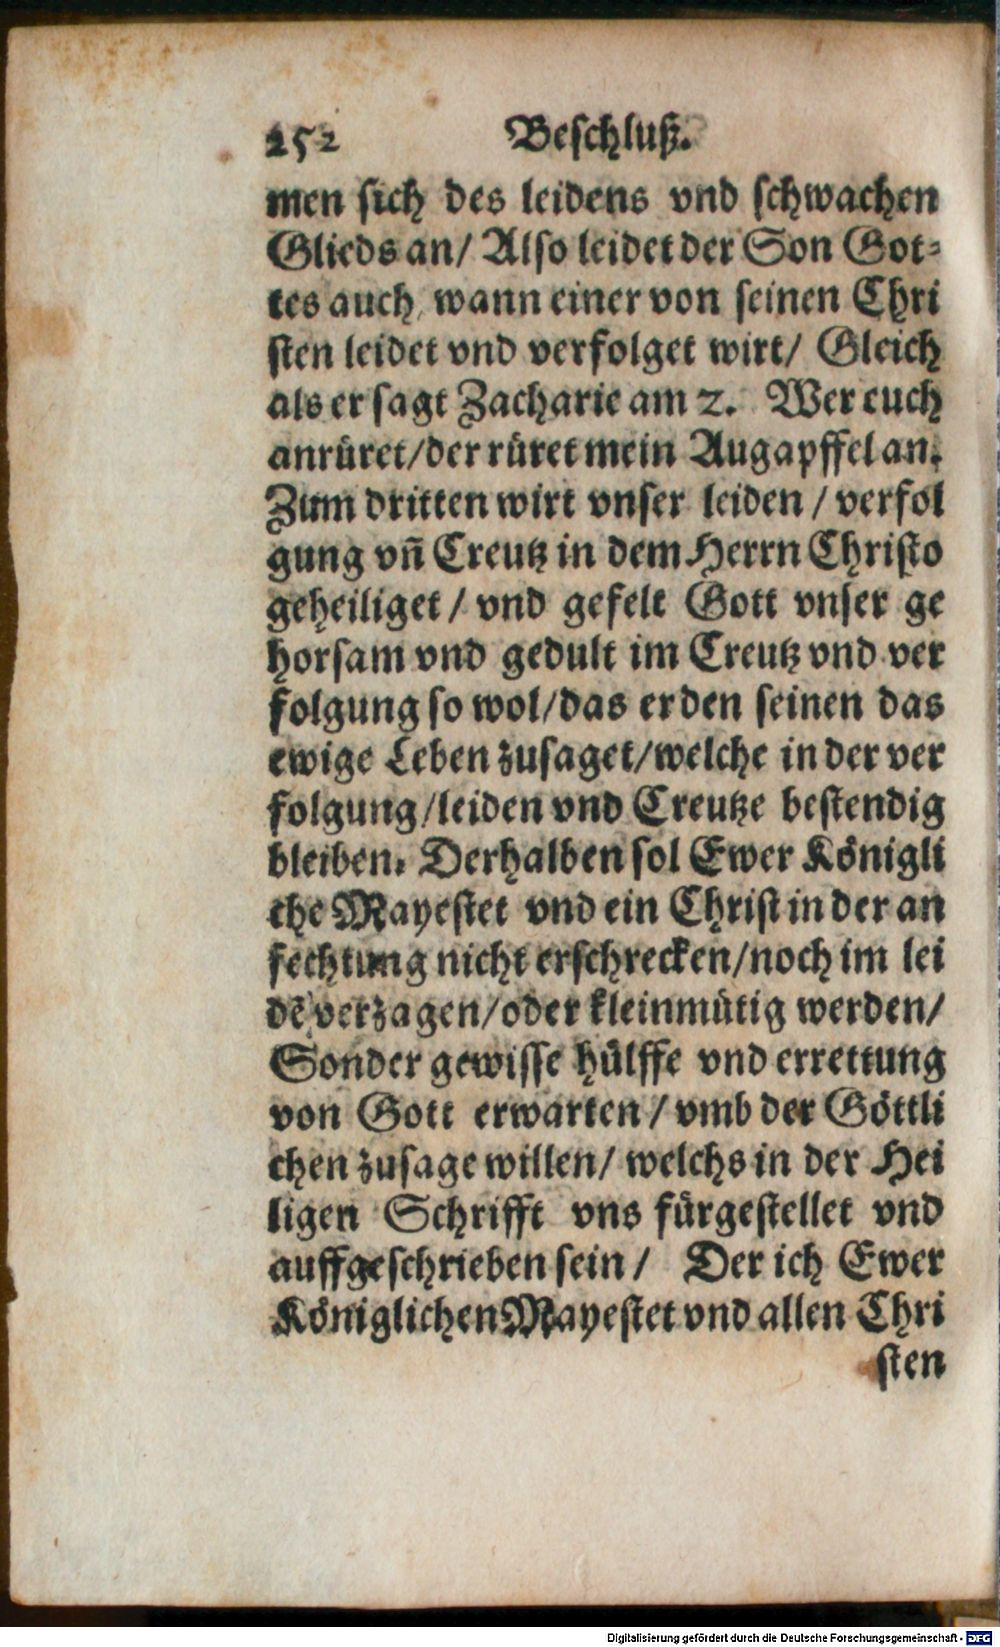 252 Beschluß.
men sich des leidens vnd schwachen
Glieds an/ Also leidet der Son Got-
tes auch, wann einer von seinen Chri
sten leidet vnd verfolget wirt/ Gleich
als er sagt Zacharie am 2. Wer euch
anrüret/der rüret mein Augapffel an.
Zum dritten wirt vnser leiden / verfol
gung vñ Creutz in dem Herrn Christo
geheiliget / vnd gefelt Gott vnser ge
horsam vnd gedult im Creutz vnd ver
folgung so wol/das er den seinen das
ewige Leben zusaget/welche in der ver
folgung/leiden vnd Creutze bestendig
bleiben. Derhalben sol Ewer Königli
che Mayestet vnd ein Christ in der an
fechtung nicht erschrecken/noch im lei
dẽ verzagen/oder kleinmütig werden/
Sonder gewisse hülffe vnd errettung
von Gott erwarten / vmb der Göttli
chen zusage willen/ welchs in der Hei
ligen Schrifft vns fürgestellet vnd
auffgeschrieben sein / Der ich Ewer
Königlichen Mayestet vnd allen Chri
sten
Digitalisierung gefördert durch die Deutsche Forschungsgemeinschaft - DFG